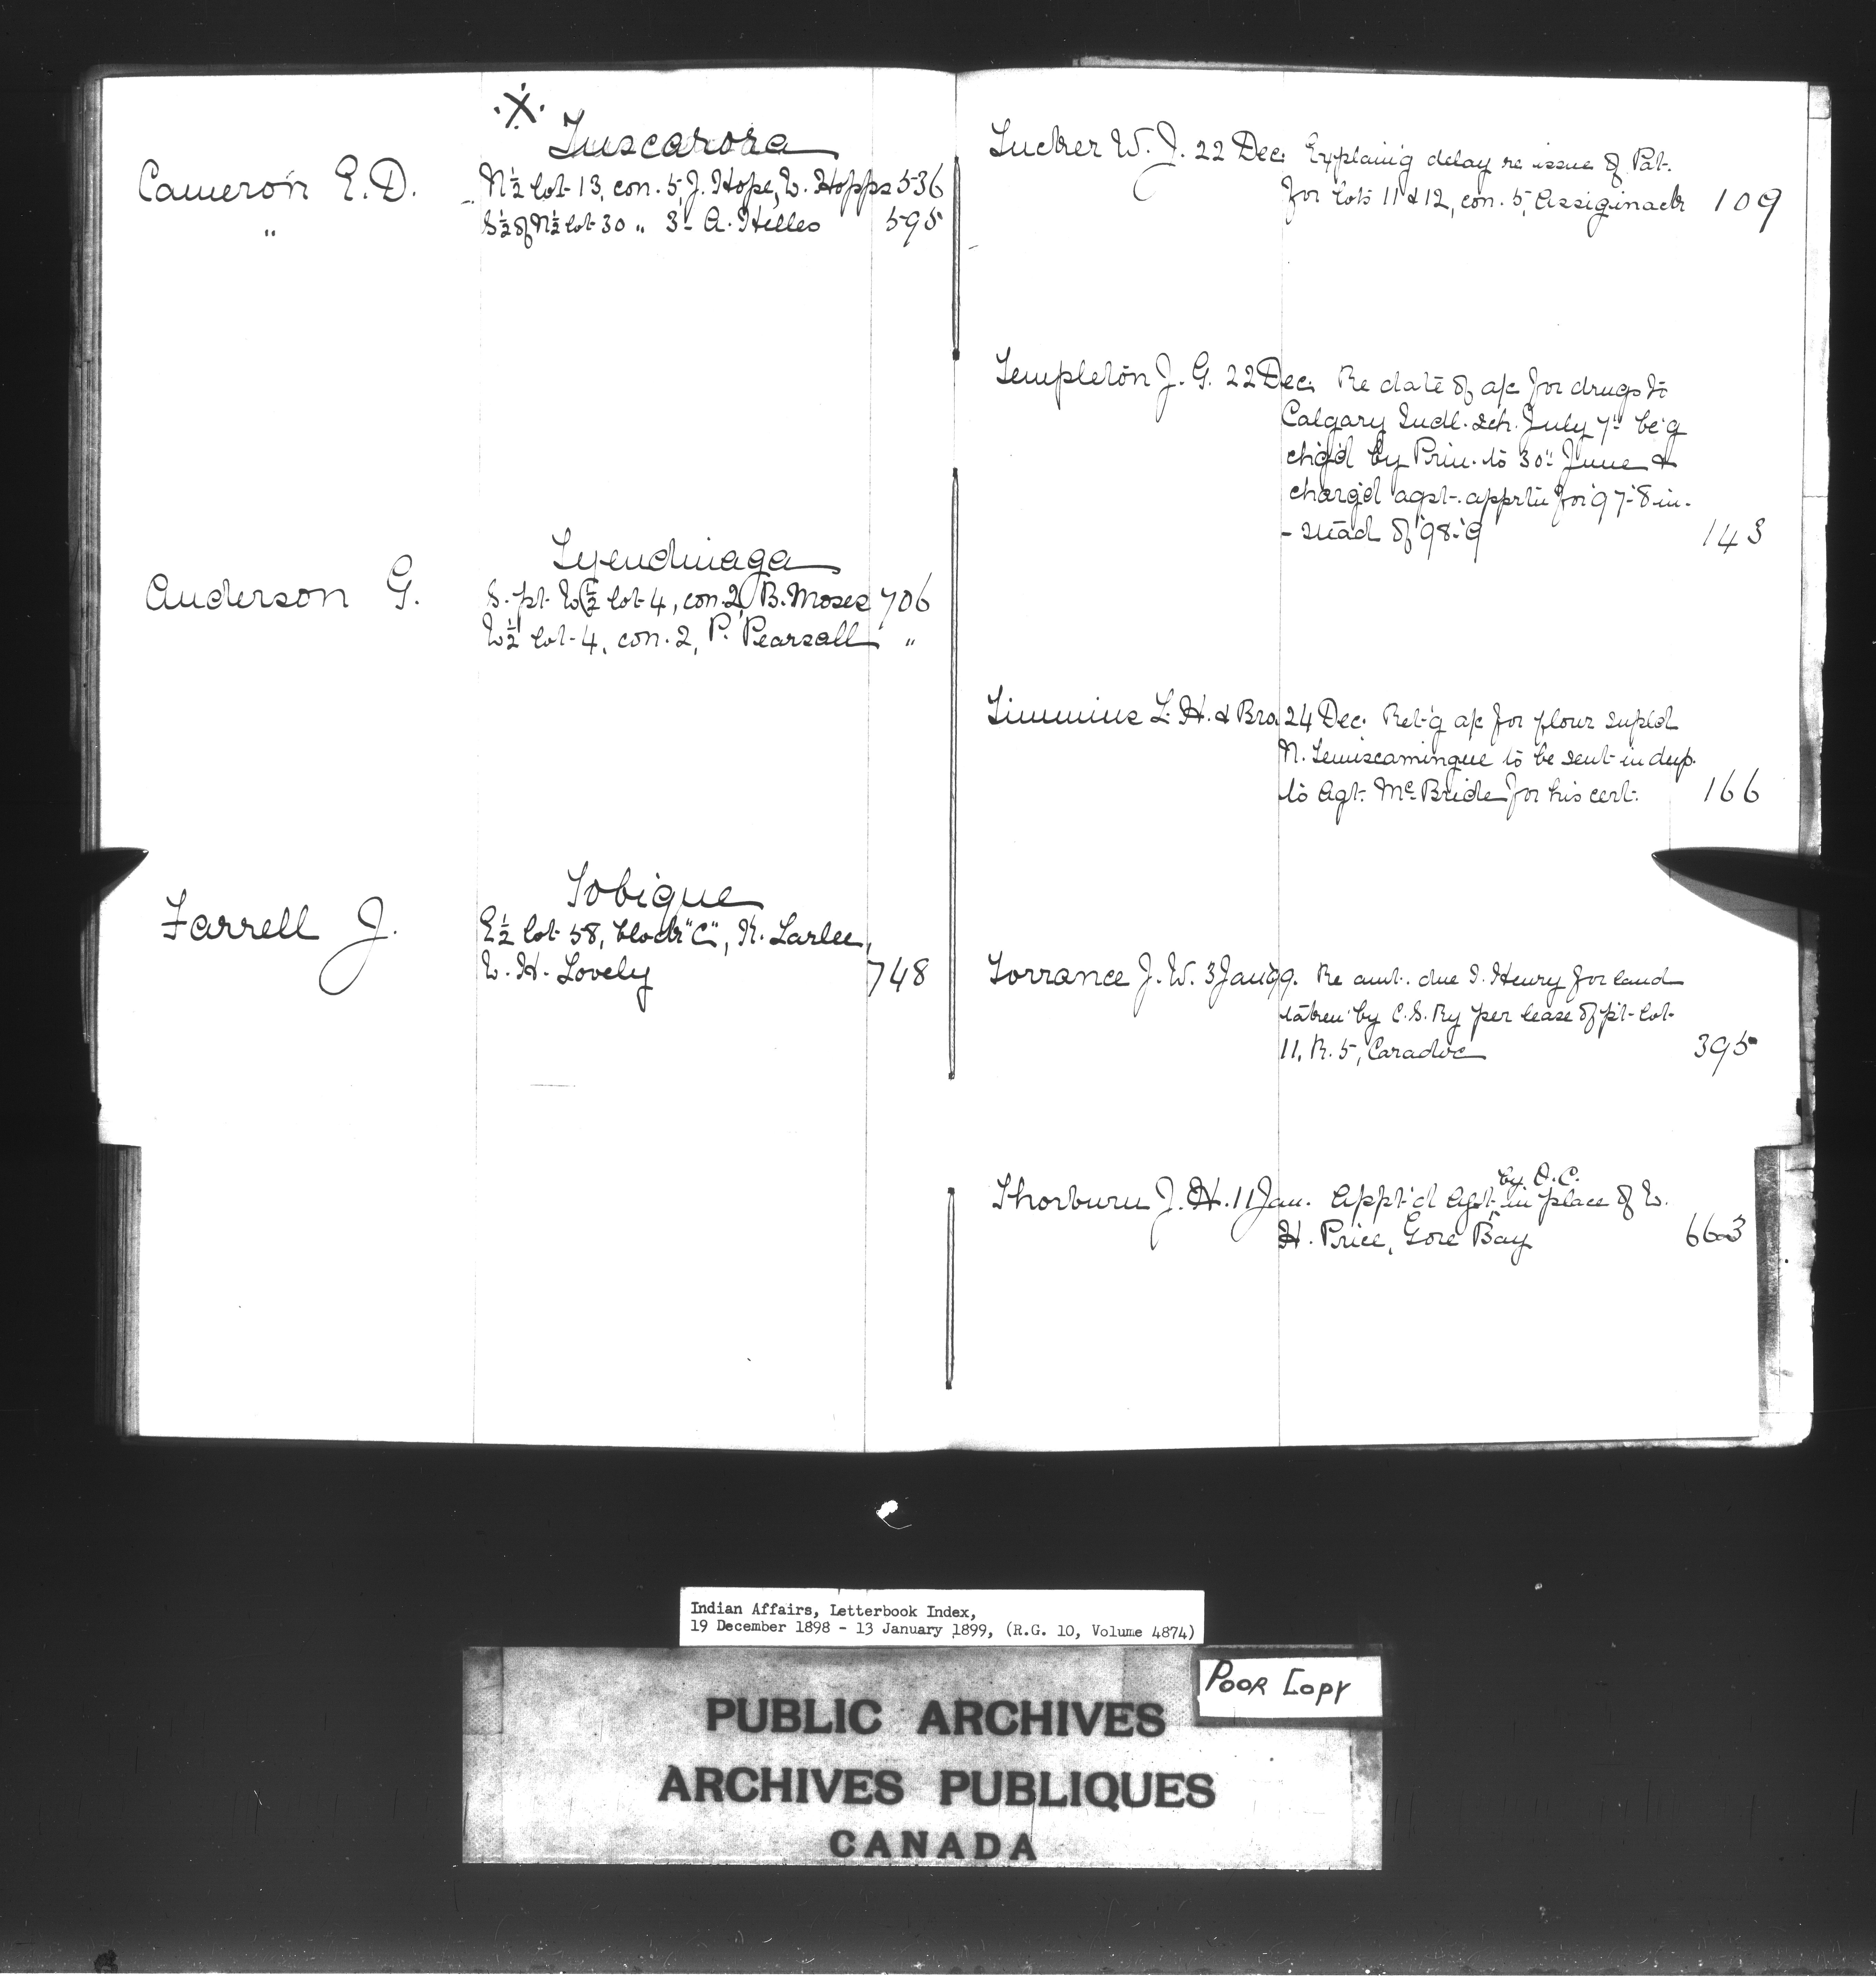 ·X·
Tuscarora
Cameron E. D. N½ lot 13, con. 5, J. Hope, W. Hopps 536
" S½ of N½ lot 30 " 3 - A. Hilles 595
Tyendinaga
Anderson G. S. pt. W½ lot 4, con. 2, B. Moses 706
W½ lot 4, con. 2, P. Pearsall "
Tobique
Farrell J. E½ lot 58, block "C", K. Larlee,
W. H. Lovely 748
Tucker W. J. 22 Dec. Explain'g delay re issue of Pat.
for lots 11 & 12, con. 5, Assiginack 109
Templeton J. G. 22 Dec. Re date of a/c for drugs to
Calgary Indl. Sch. July 7" be'g
ch'g'd by Prin. to 30" June &
charg'd agst. apprtn for '97-'8 in-
-stead of '98-'9 143
Timmins L. H. & Bro 24 Dec. Ret'g a/c for flour supld
N. Temiscamingue to be sent in dup.
to Agt. McBride for his cert. 166
Torrance J. W. 3 Jan 99. Re amt. due I. Henry for land
taken by C.S. Ry per lease of pt. lot
11, R. 5, Caradoc 395
Thorburn J. H. 11 Jan. Appt'd Agt. by O.C. in place of W.
H. Price, Gore Bay 663
Indian Affairs, Letterbook Index,
19 December 1898 - 13 January 1899, (R.G. 10, Volume 4874)
POOR COPY
PUBLIC ARCHIVES
ARCHIVES PUBLIQUES
CANADA